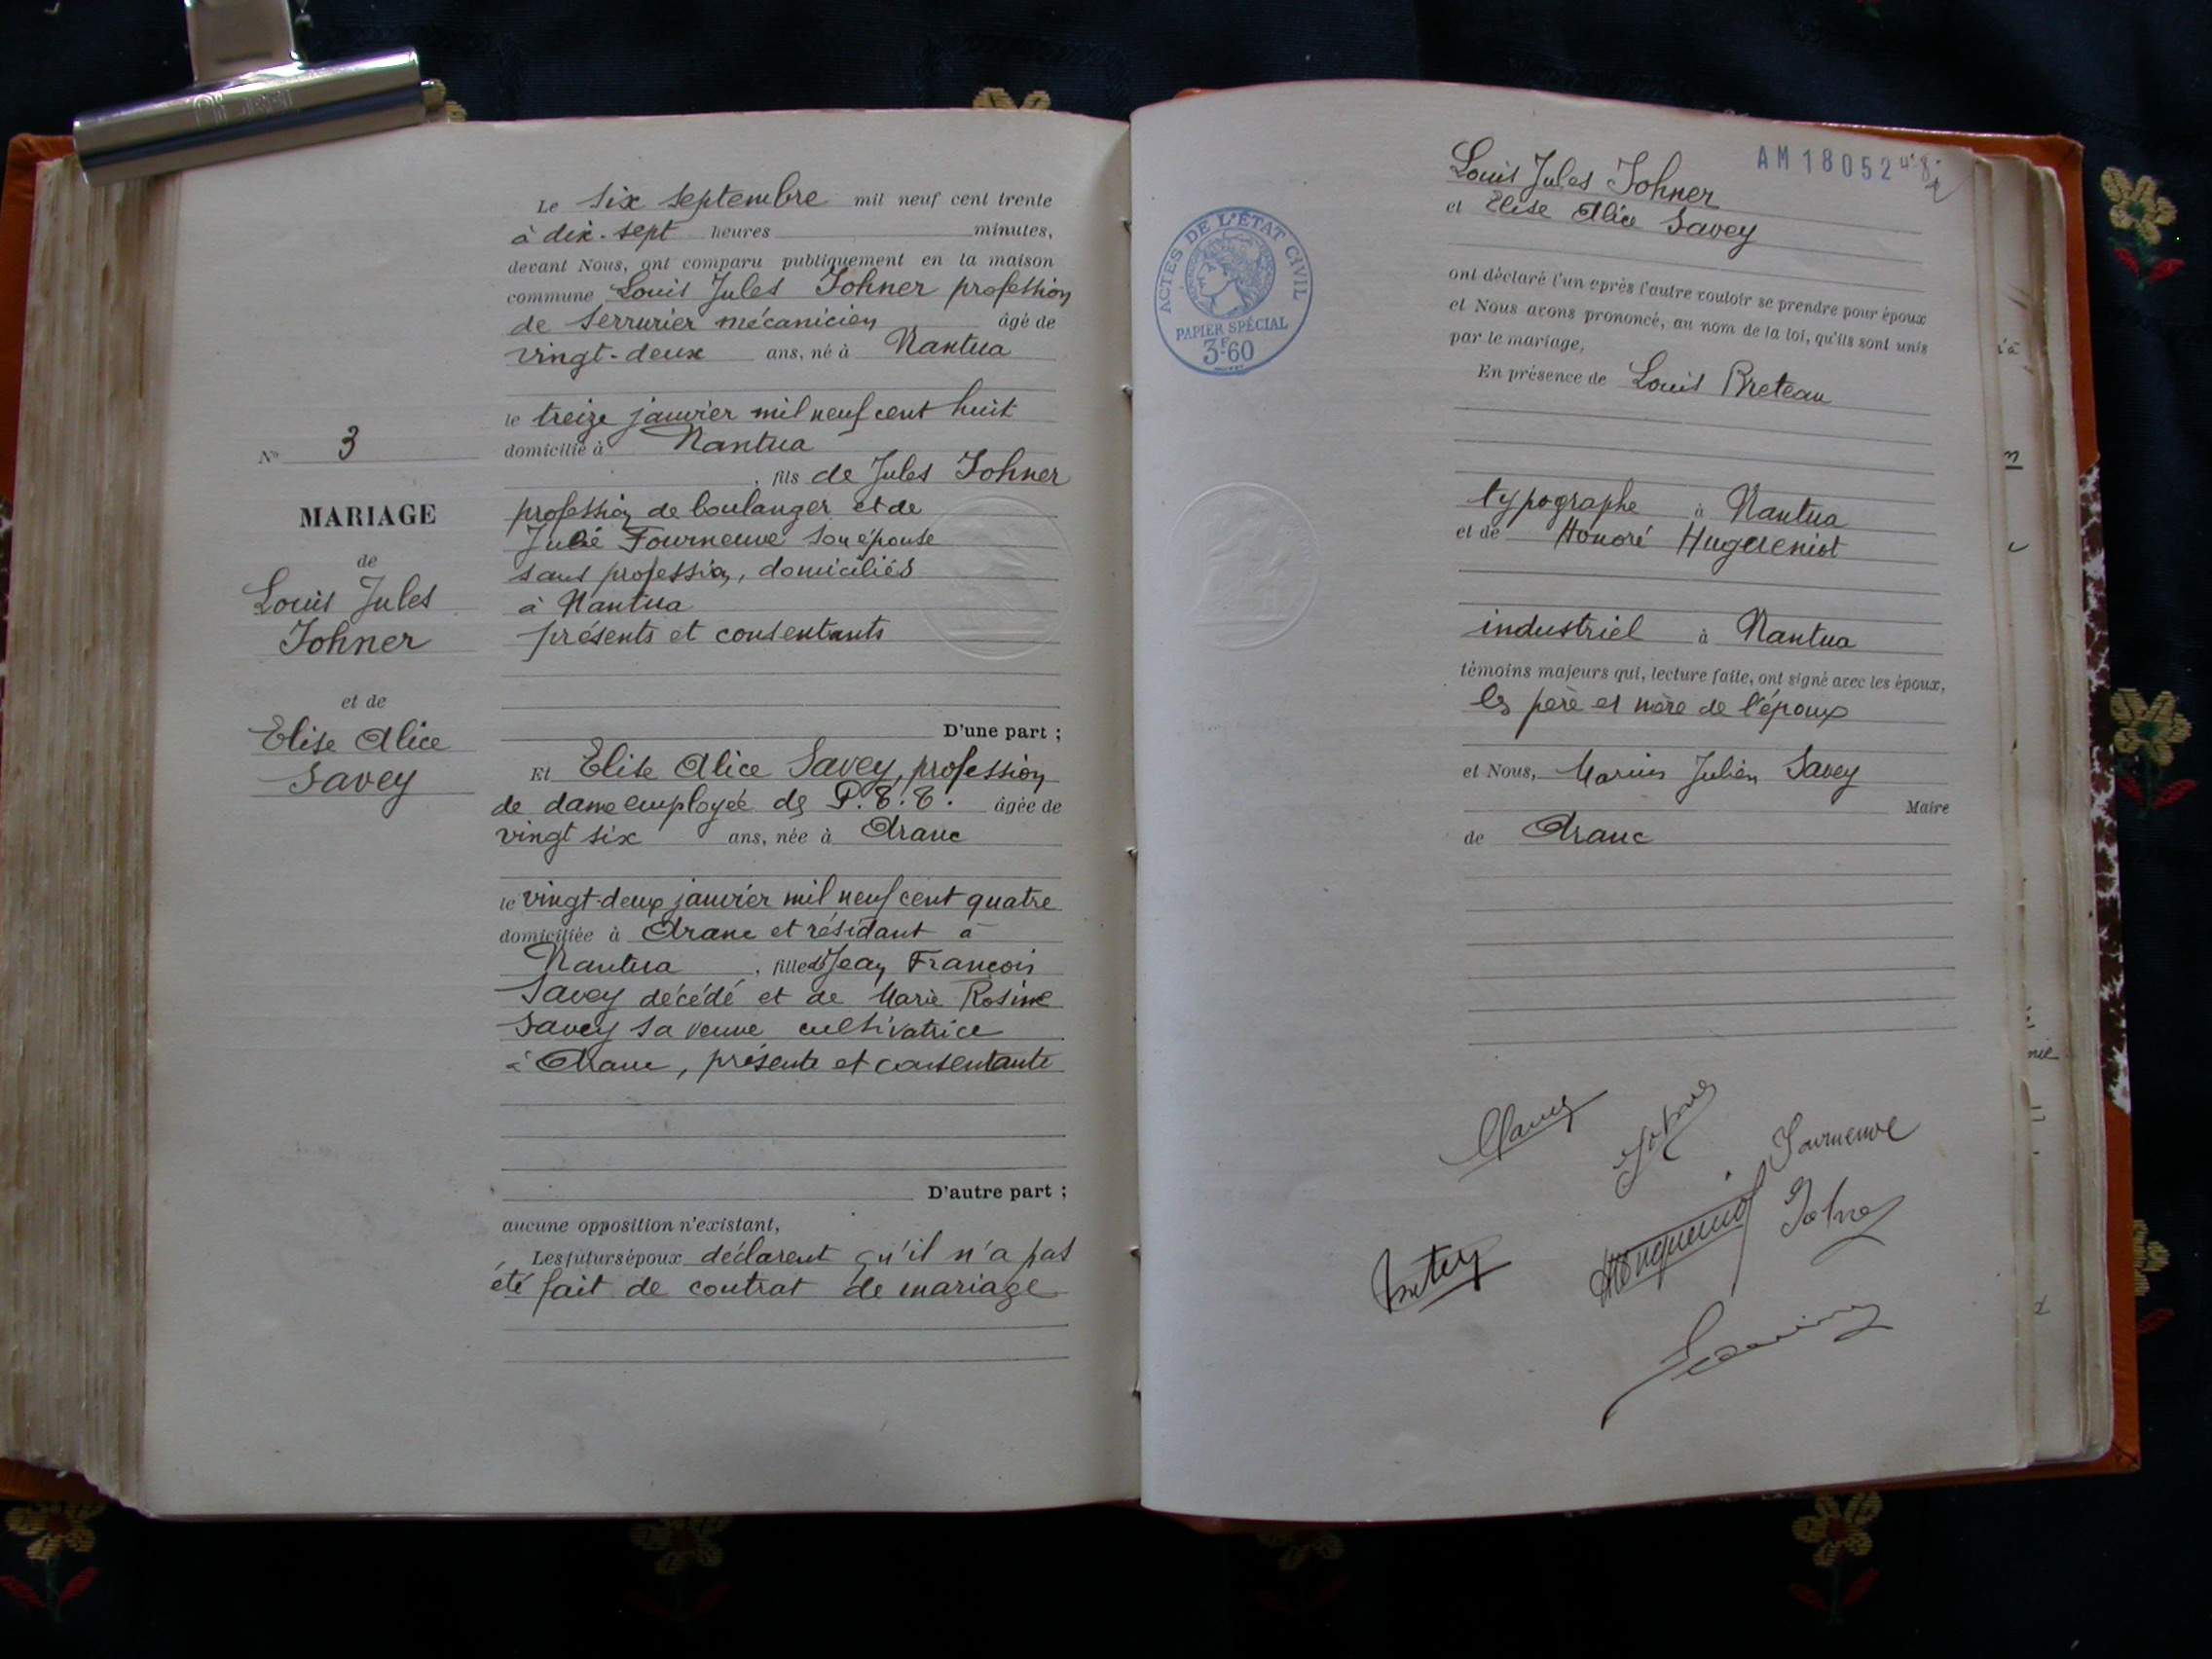 N° 3
MARIAGE
de
Louis Jules
Johner
et de
Elise Alice
Savey
Le six septembre mil neuf cent trente
à dix-sept heures minutes,
devant Nous, ont comparu publiquement en la maison
commune Louis Jules Johner profession
de serrurier mécanicien âgé de
vingt-deux ans, né à Nantua
le treize janvier mil neuf cent huit
domicilié à Nantua
, fils de Jules Johner
profession de boulanger et de
Julie Fourneuve son épouse
sans profession, domiciliés
à Nantua
présents et consentants
D'une part ;
Et Elise Alice Savey, profession
de dame employée des P.T.T. âgée de
vingt six ans, née à Aranc
le vingt-deux janvier mil neuf cent quatre
domiciliée à Aranc et résidant à
Nantua , fille de Jean François
Savey décédé et de Marie Rosine
Savey sa veuve cultivatrice
à Aranc, présente et consentante
D'autre part ;
aucune opposition n'existant,
Les futurs époux déclarent qu'il n'a pas
été fait de contrat de mariage
AM 18052
Louis Jules Johner
et Elise Alice Savey
ACTES DE L'ÉTAT CIVIL
PAPIER SPÉCIAL
3F60
ont déclaré l'un après l'autre vouloir se prendre pour époux
et Nous avons prononcé, au nom de la loi, qu'ils sont unis
par le mariage,
En présence de Louis Breteau
typographe à Nantua
et de Honoré Hugueniot
industriel à Nantua
témoins majeurs qui, lecture faite, ont signé avec les époux,
les père et mère de l'époux
et Nous, Marius Julien Savey
Maire
de Aranc
Johner
Fourneuve
Johner